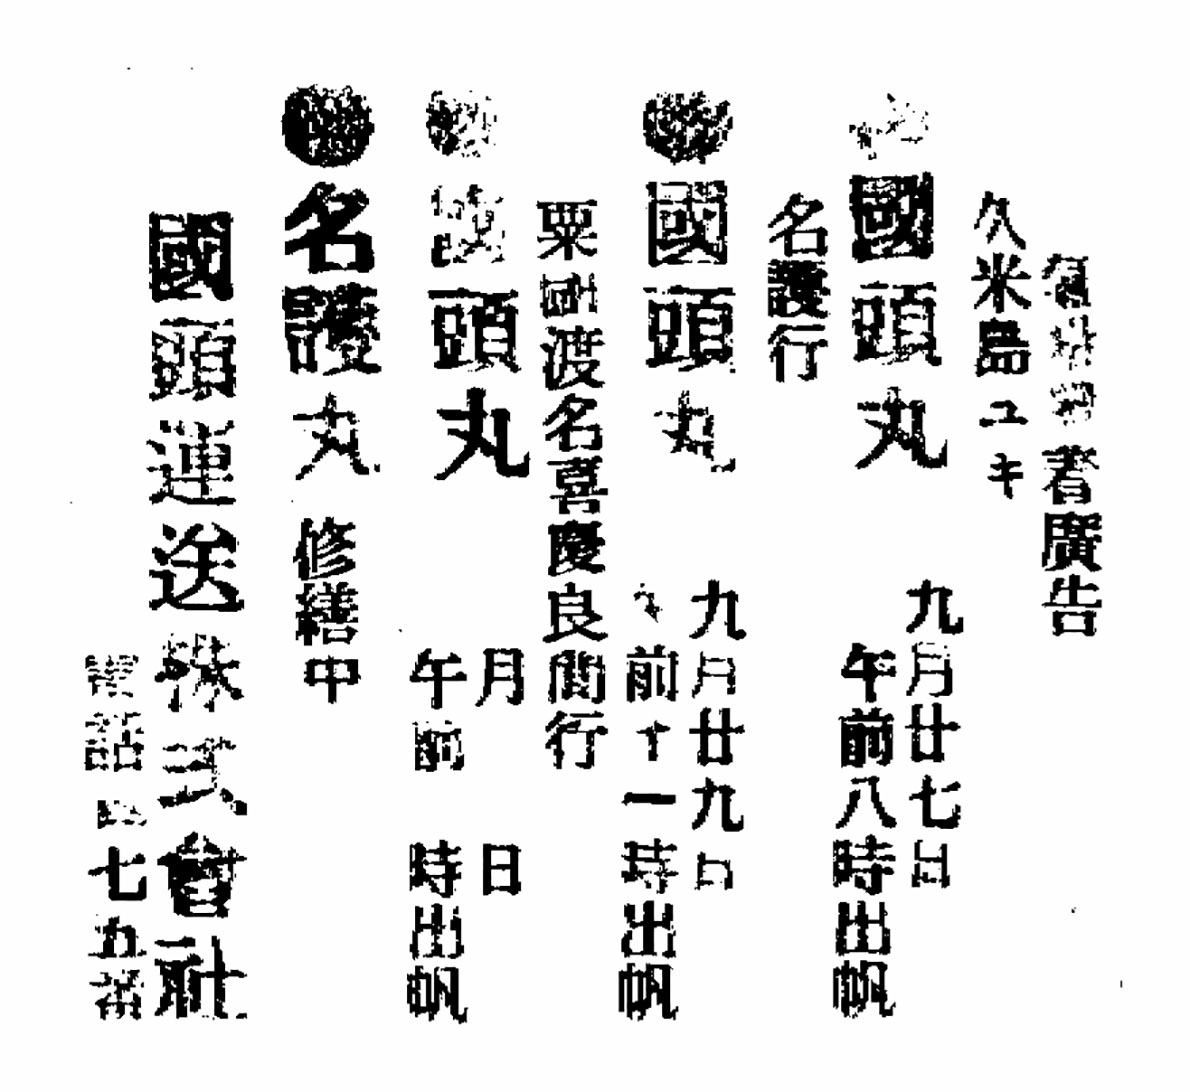 廣告
久米島ユキ
國頭丸
九月廿七日
午前八時出帆
名護行
國頭丸
九月廿九日
午前十一時出帆
粟國渡名喜慶良間行
頭丸
月 日
午前 時出帆
名護丸 修繕中
國頭運送株式會社
電話 七五番